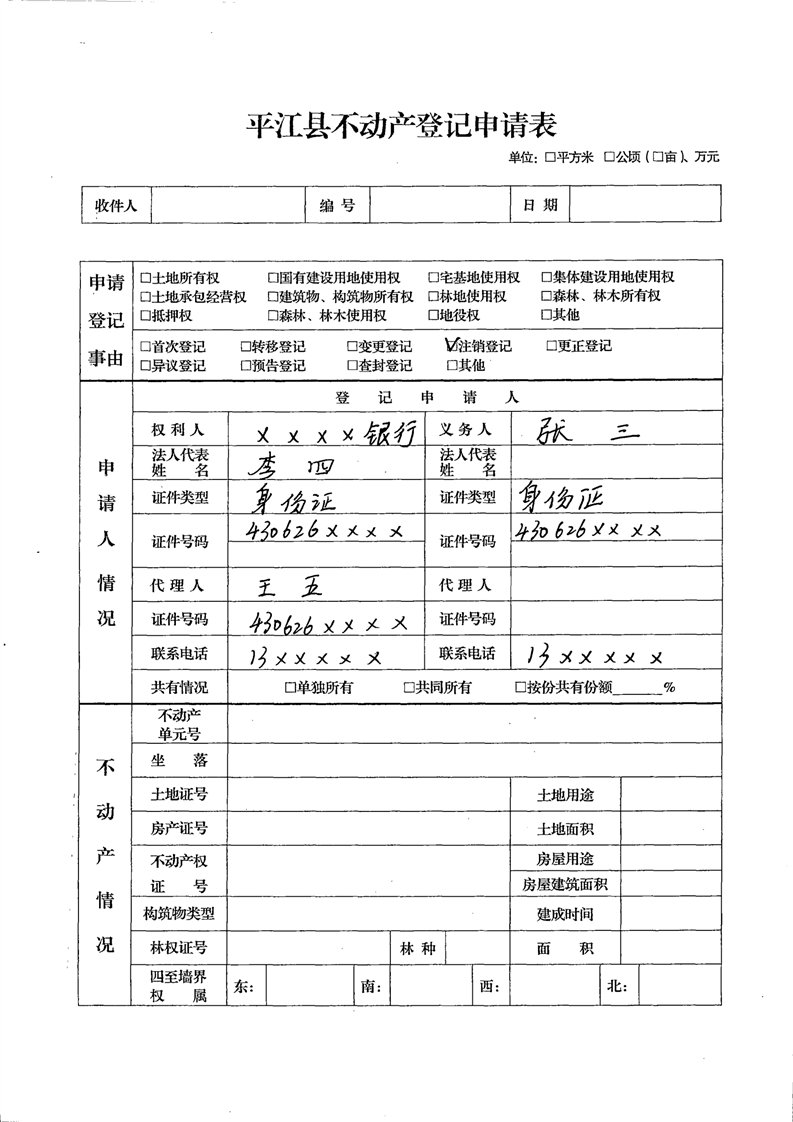 平江县不动产登记申请表
单位：□平方米 □公顷（□亩）、万元
收件人 编号 日期
申请登记事由
□土地所有权 □国有建设用地使用权 □宅基地使用权 □集体建设用地使用权
□土地承包经营权 □建筑物、构筑物所有权 □林地使用权 □森林、林木所有权
□抵押权 □森林、林木使用权 □地役权 □其他
□首次登记 □转移登记 □变更登记 ☑注销登记 □更正登记
□异议登记 □预告登记 □查封登记 □其他
申请人情况
登记申请人
权利人 ××××银行 义务人 张三
法人代表姓名 李四 法人代表姓名
证件类型 身份证 证件类型 身份证
证件号码 430626×××× 证件号码 430626××××
代理人 王五 代理人
证件号码 430626×××× 证件号码
联系电话 13××××× 联系电话 13×××××
共有情况 □单独所有 □共同所有 □按份共有份额______%
不动产情况
不动产单元号
坐落
土地证号 土地用途
房产证号 土地面积
不动产权证号 房屋用途
房屋建筑面积
构筑物类型 建成时间
林权证号 林种 面积
四至墙界权属 东： 南： 西： 北：